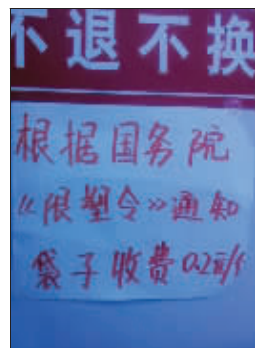 不退不换
根据国务院
《限塑令》通知
袋子收费0.2元/个